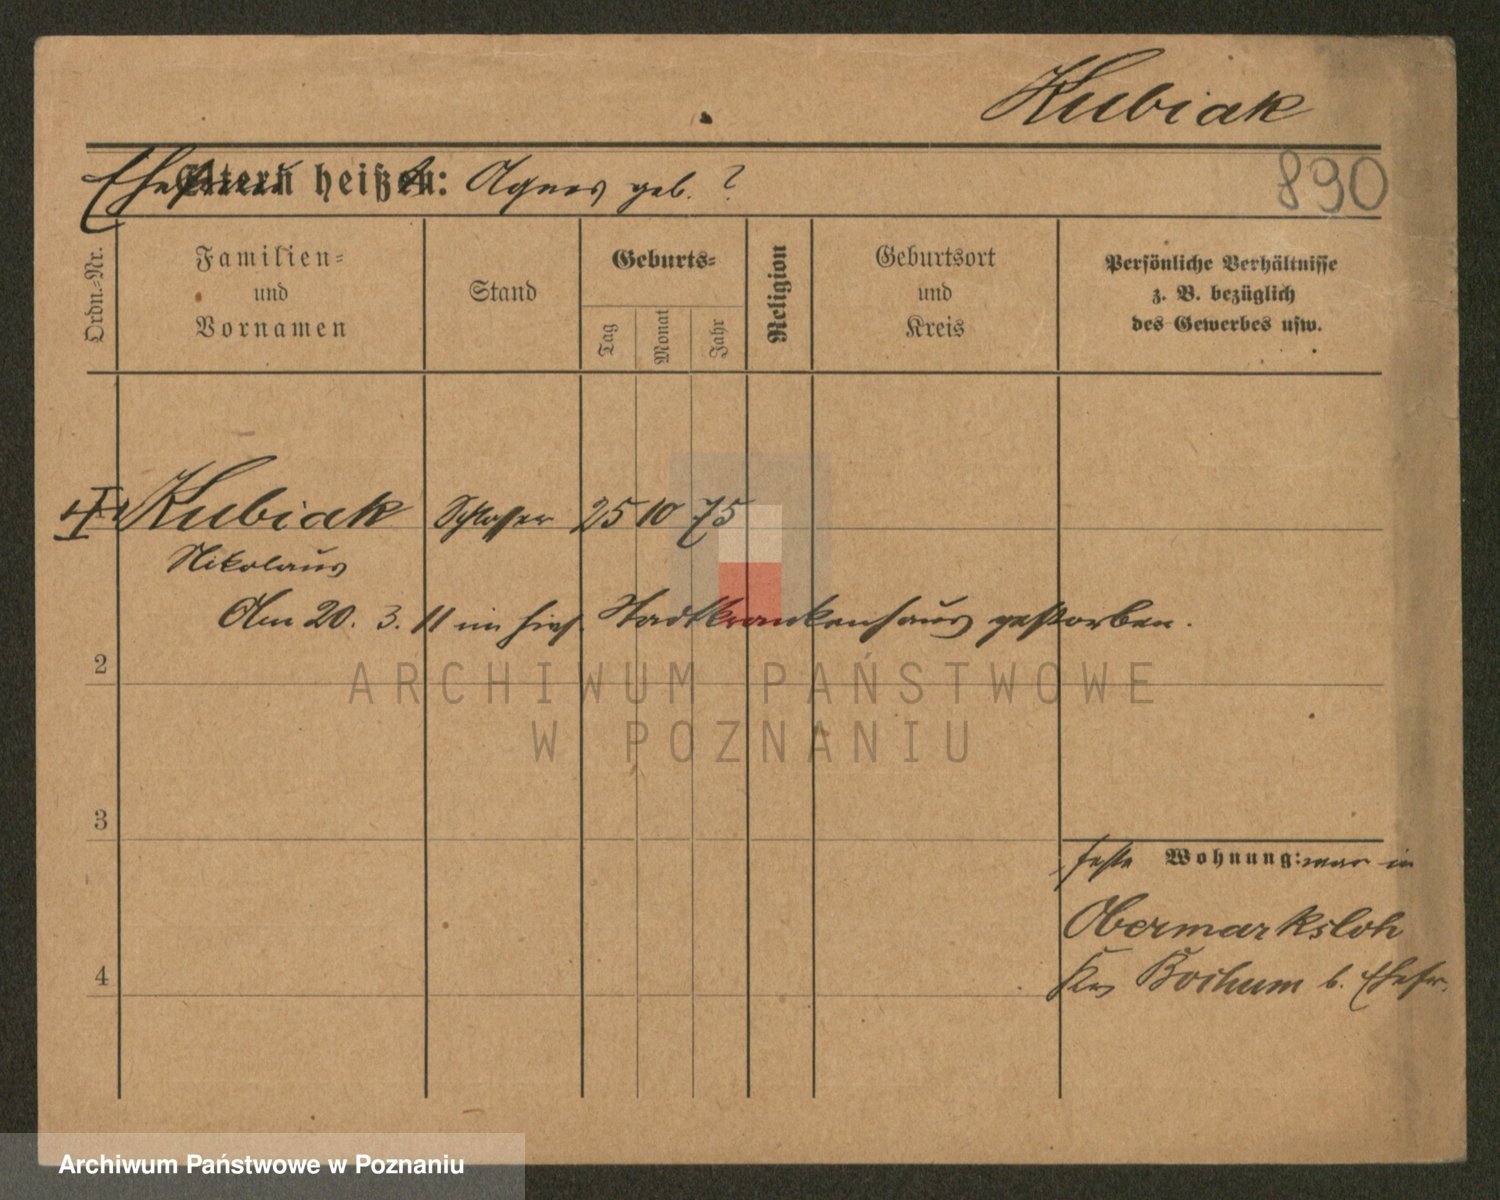 Kubiak
Ehefrau heißt: Agnes geb. ?
890
Ordn.-Nr.
Familien-
und
Vornamen
Stand
Geburts-
Tag
Monat
Jahr
Religion
Geburtsort
und
Kreis
Persönliche Verhältnisse
z. B. bezüglich
des Gewerbes usw.
Kubiak Schlosser 25 10 75
Nikolaus
Am 20. 3. 11 im hies. Stadtkrankenhaus gestorben.
2
ARCHIWUM PAŃSTWOWE
W POZNANIU
3
feste Wohnung: war in
Obermarksloh
Krs Bochum b. Ehefr.
4
Archiwum Państwowe w Poznaniu